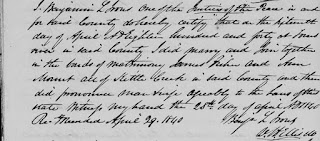 I Benjamin L Fouts one of the Justices of the Peace in and
for said County do hereby certify that on the fifteenth
day of April AD Eighteen hundred and forty at Jones
in said County I did marry and Join together
in the bands of matrimony James and
Mount all of Settle Creek in said County and then
did pronounce man & wife agreeably to the Laws of the
State Witness my hand the 28th day of April 1840
Recorded April 29. 1840
Benj L Fouts